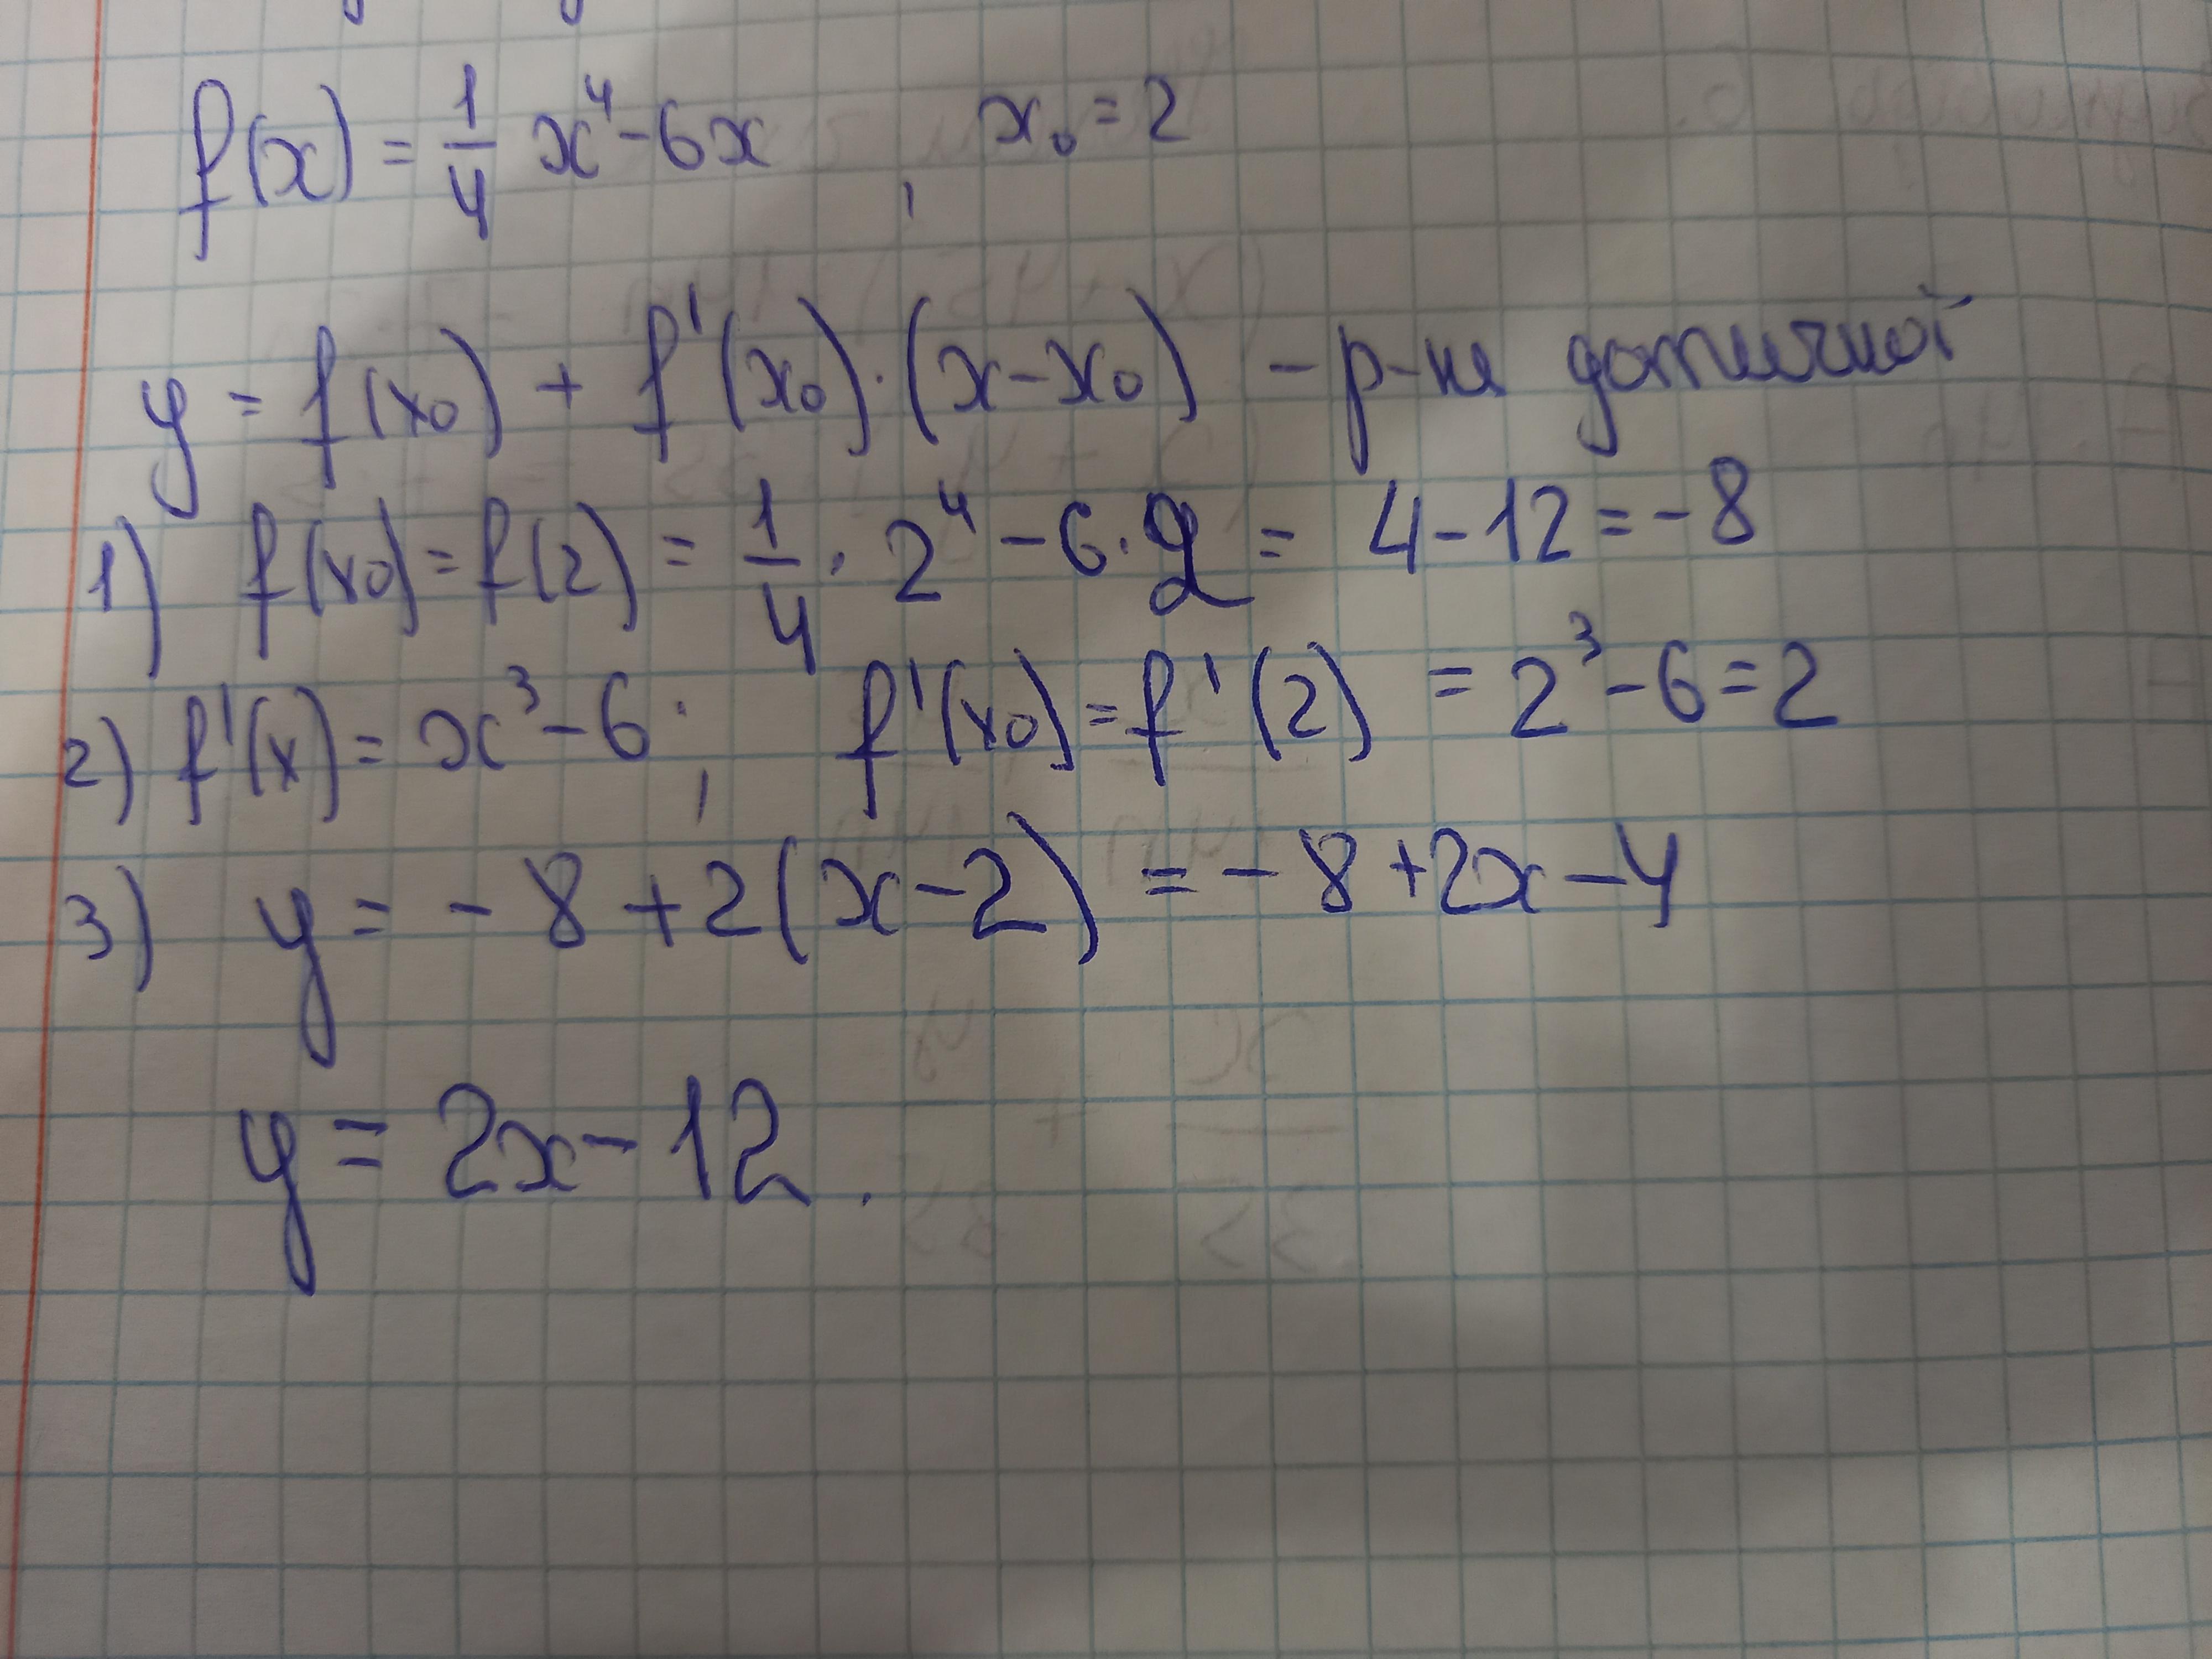 f(x) = 1/4 x⁴ - 6x , x₀ = 2
y = f(x₀) + f'(x₀)·(x - x₀) - р-ня дотичної
1) f(x₀) = f(2) = 1/4 · 2⁴ - 6·2 = 4 - 12 = -8
2) f'(x) = x³ - 6 ; f'(x₀) = f'(2) = 2³ - 6 = 2
3) y = -8 + 2(x - 2) = -8 + 2x - 4
y = 2x - 12.